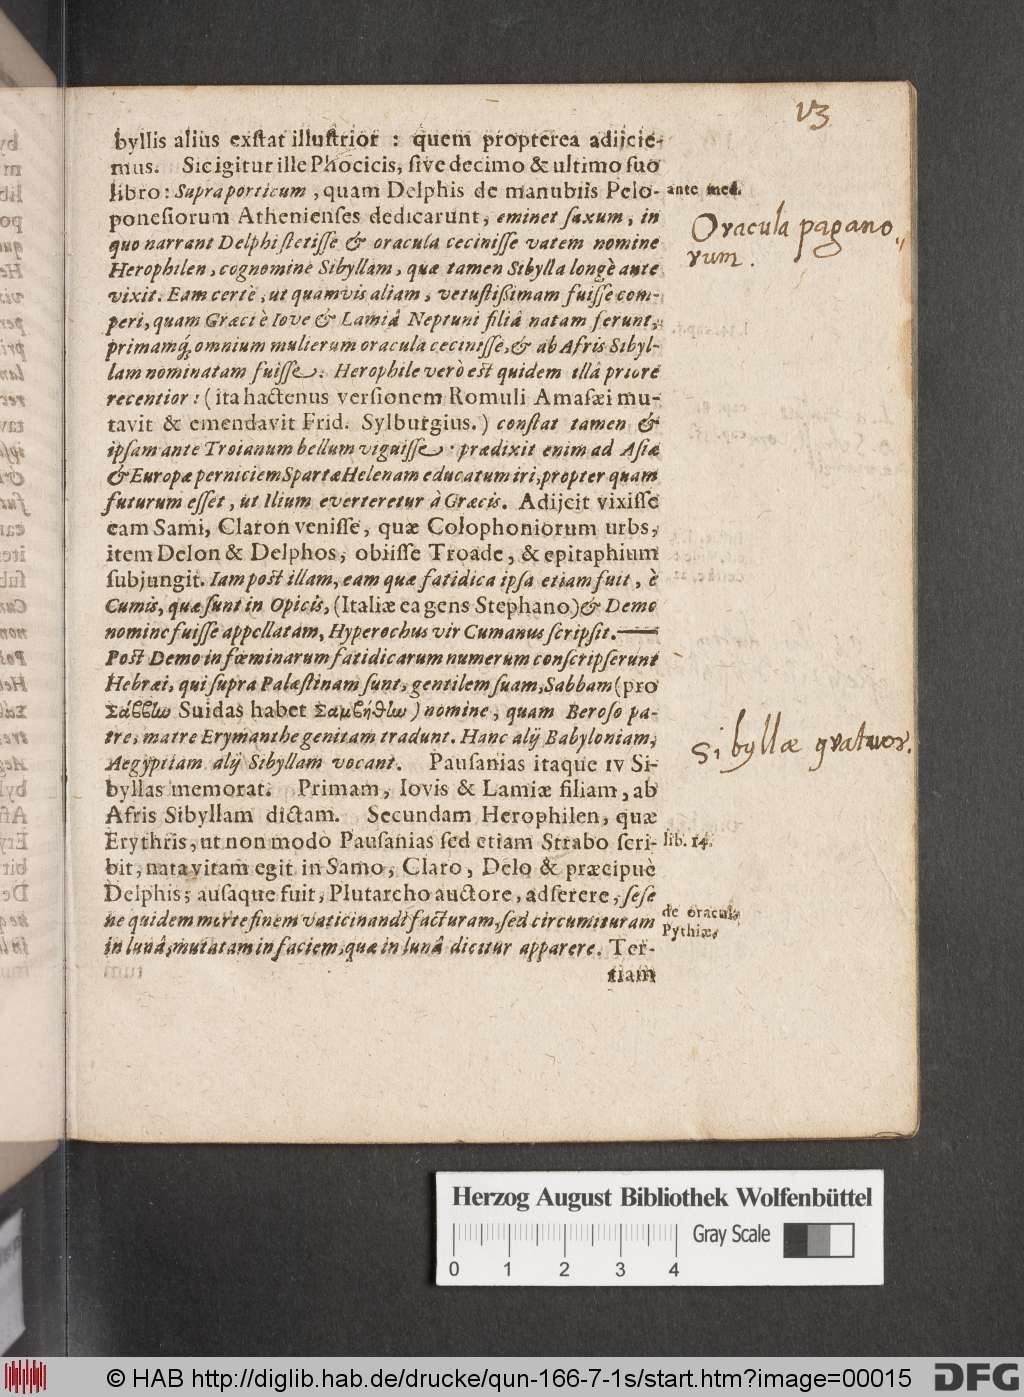 13
byllis alius exſtat illuſtrior : quem propterea adijcie-
mus. Sic igitur ille Phocicis, ſive decimo & ultimo ſuo
libro: Supra porticum, quam Delphis de manubiis Pelo-
ante med.
poneſiorum Athenienſes dedicarunt, eminet ſaxum, in
Oracula pagano
quo narrant Delphi ſtetiſſe & oracula ceciniſſe vatem nomine
rum.
Herophilen, cognomine Sibyllam, quæ tamen Sibylla longè ante
vixit. Eam certè, ut quamvis aliam, vetuſtißimam fuiſſe com-
peri, quam Græci è Iove & Lamiâ Neptuni filiâ natam ferunt,
primamq́; omnium mulierum oracula ceciniſſe, & ab Afris Sibyl-
lam nominatam fuiſſe. Herophile verò eſt quidem illâ priore
recentior: (ita hactenus verſionem Romuli Amaſæi mu-
tavit & emendavit Frid. Sylburgius.) conſtat tamen &
ipſam ante Troianum bellum viguiſſe: prædixit enim ad Aſiæ
& Europæ perniciem Spartæ Helenam educatum iri, propter quam
futurum eſſet, ut Ilium everteretur à Græcis. Adijcit vixiſſe
eam Sami, Claron veniſſe, quæ Colophoniorum urbs,
item Delon & Delphos, obiiſſe Troade, & epitaphium
ſubjungit. Iam poſt illam, eam quæ fatidica ipſa etiam fuit, è
Cumis, quæ ſunt in Opicis, (Italiæ ea gens Stephano) & Demo
nomine fuiſſe appellatam, Hyperochus vir Cumanus ſcripſit.——
Poſt Demo in fœminarum fatidicarum numerum conſcripſerunt
Hebræi, qui ſupra Palæſtinam ſunt, gentilem ſuam, Sabbam (pro
Σάββω Suidas habet Σαμβήθω) nomine, quam Beroſo pa-
tre, matre Erymanthe genitam tradunt. Hanc alij Babyloniam,
Sibyllæ quatuor.
Aegyptiam alij Sibyllam vocant. Pauſanias itaque IV Si-
byllas memorat. Primam, Iovis & Lamiæ filiam, ab
Afris Sibyllam dictam. Secundam Herophilen, quæ
Erythris, ut non modo Pauſanias ſed etiam Strabo ſcri-
lib. 14.
bit, nata vitam egit in Samo, Claro, Delo & præcipuè
Delphis; auſaque fuit, Plutarcho auctore, adſerere, ſeſe
ne quidem morte finem vaticinandi facturam, ſed circumituram
de oracul.
Pythiæ.
in lunâ, mutatam in faciem, quæ in lunâ dicitur apparere. Ter-
tiam
Herzog August Bibliothek Wolfenbüttel
Gray Scale
0 1 2 3 4
© HAB http://diglib.hab.de/drucke/qun-166-7-1s/start.htm?image=00015
DFG